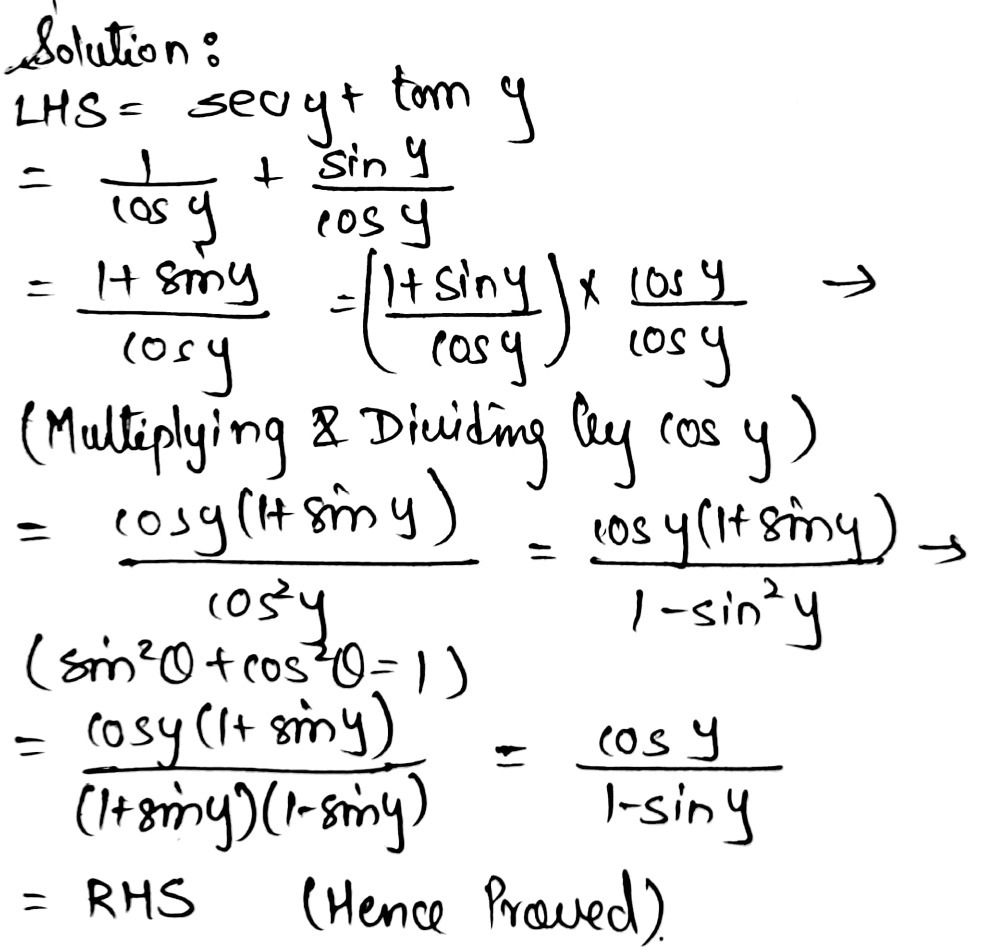 Solution:
LHS = sec y + tan y
= 1/cos y + sin y/cos y
= (1 + sin y)/cos y = ((1 + sin y)/cos y) × cos y/cos y →
(Multiplying & Dividing by cos y)
= cos y(1 + sin y)/cos²y = cos y(1 + sin y)/(1 - sin²y) →
(sin²θ + cos²θ = 1)
= cos y(1 + sin y)/((1 + sin y)(1 - sin y)) = cos y/(1 - sin y)
= RHS (Hence Proved).